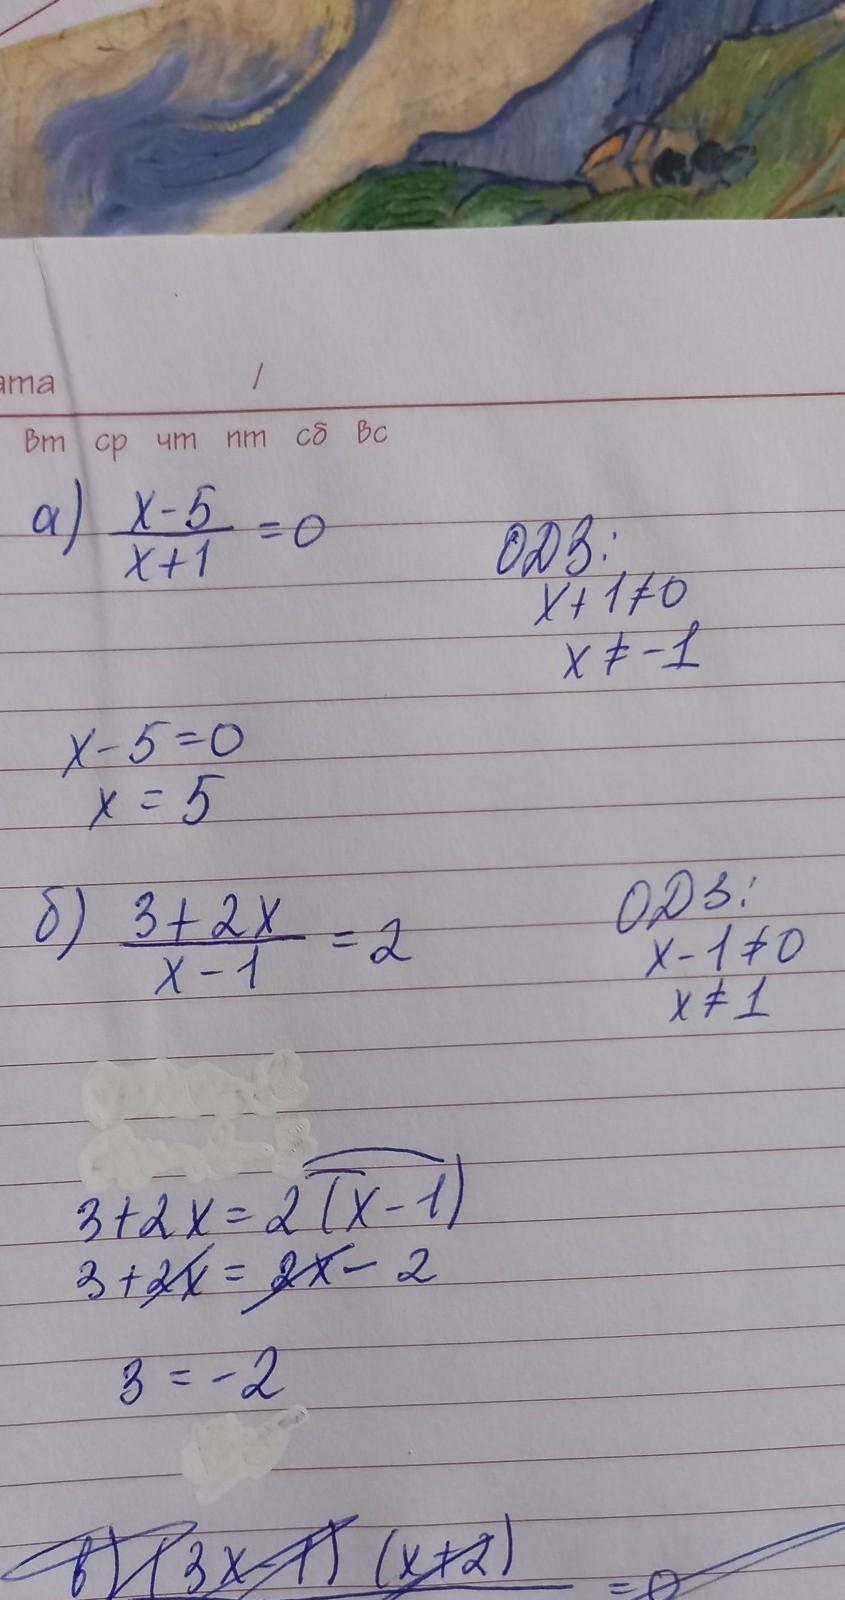 ата /
Вт ср чт пт сб Вс
а) x-5 / x+1 = 0
ОДЗ:
x+1≠0
x≠-1
x-5=0
x=5
б) 3+2x / x-1 = 2
ОДЗ:
x-1≠0
x≠1
3+2x=2(x-1)
3+2x=2x-2
3=-2
в) (3x-1)(x+2) =0